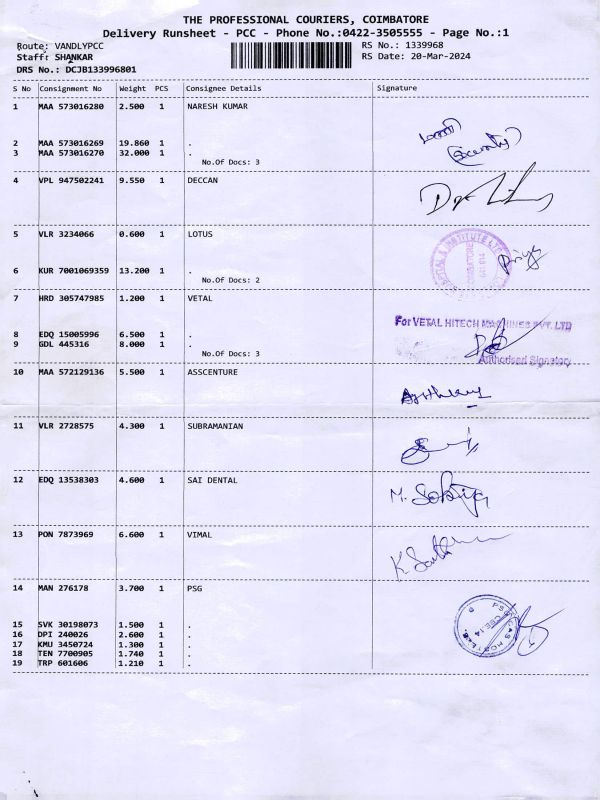 THE PROFESSIONAL COURIERS, COIMBATORE
Delivery Runsheet - PCC - Phone No.:0422-3505555 - Page No.:1
Route: VANDLYPCC
RS No.: 1339968
Staff: SHANKAR
RS Date: 20-Mar-2024
DRS No.: DCJB133996801
S No Consignment No Weight PCS Consignee Details Signature
1 MAA 573016280 2.500 1 NARESH KUMAR
2 MAA 573016269 19.860 1 .
3 MAA 573016270 32.000 1 .
No.Of Docs: 3
4 VPL 947502241 9.550 1 DECCAN
5 VLR 3234066 0.600 1 LOTUS
6 KUR 7001069359 13.200 1 .
No.Of Docs: 2
7 HRD 305747985 1.200 1 VETAL
For VETAL HITECH MACHINES PVT. LTD
8 EDQ 15005996 6.500 1 .
9 GDL 445316 8.000 1 .
No.Of Docs: 3
Authorised Signatory
10 MAA 572129136 5.500 1 ASSCENTURE
11 VLR 2728575 4.300 1 SUBRAMANIAN
12 EDQ 13538303 4.600 1 SAI DENTAL
13 PON 7873969 6.600 1 VIMAL
14 MAN 276178 3.700 1 PSG
15 SVK 30198073 1.500 1 .
16 DPI 240026 2.600 1 .
17 KMU 3450724 1.300 1 .
18 TEN 7700905 1.740 1 .
19 TRP 601606 1.210 1 .